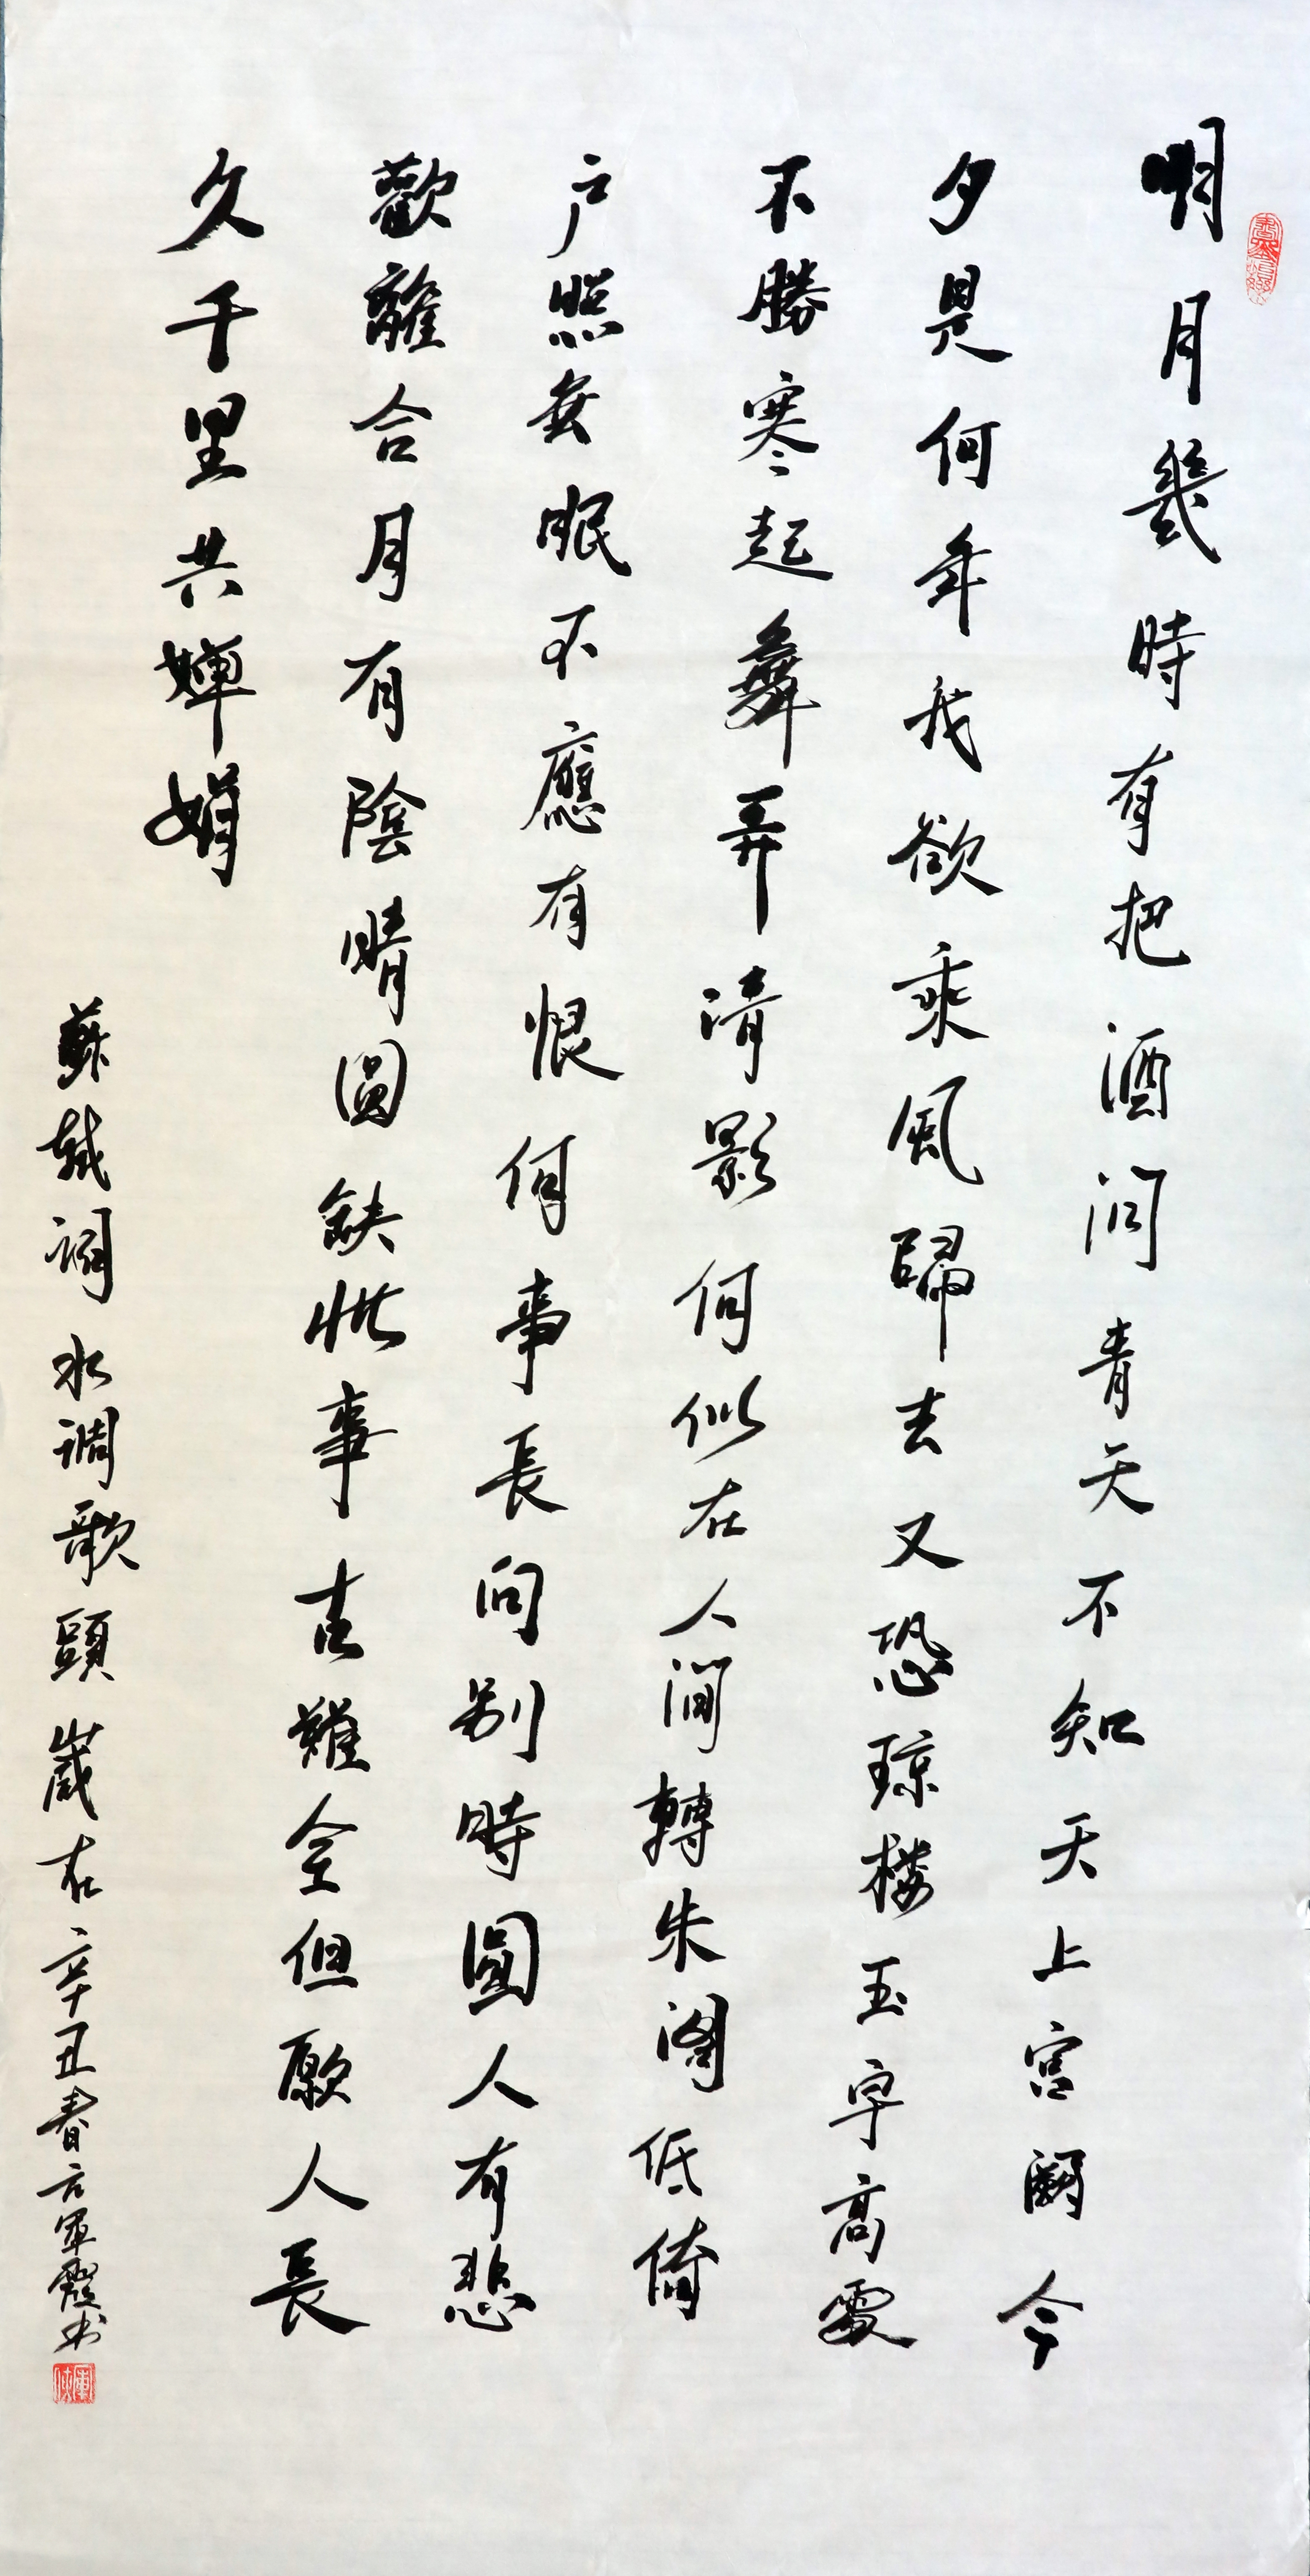 明月幾時有把酒問青天不知天上宫闕今
夕是何年我欲乘風歸去又恐琼楼玉宇高處
不勝寒起舞弄清影何似在人間轉朱閣低倚
户照無眠不應有恨何事長向别時圓人有悲
歡離合月有陰晴圓缺此事古難全但願人長
久千里共嬋娟
蘇軾詞水調歌頭嵗在辛丑春方軍霞书